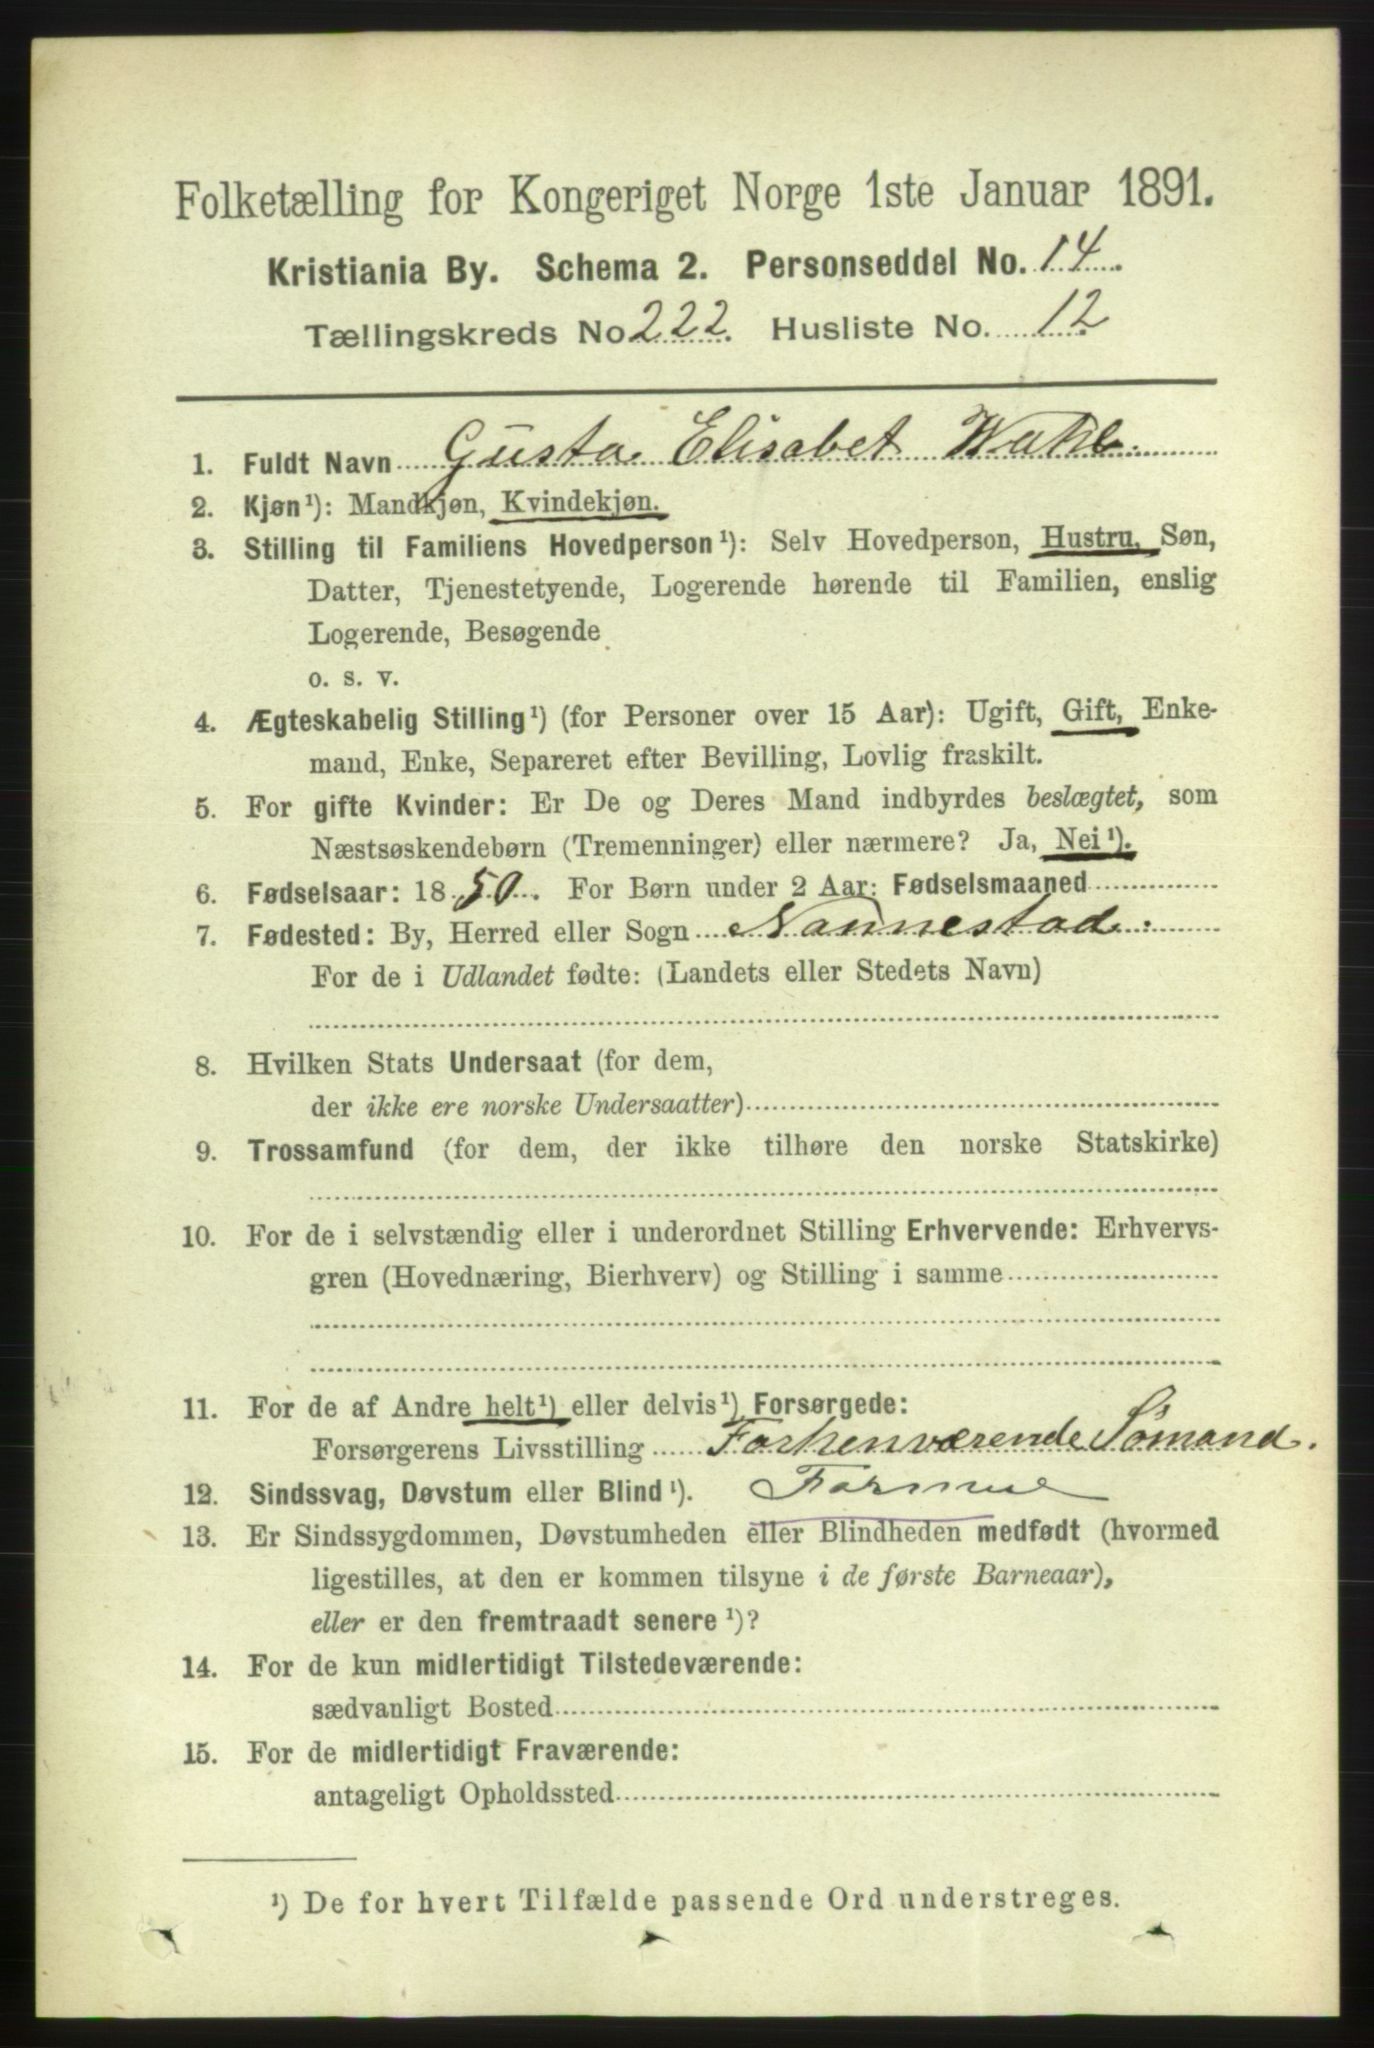 Folketælling for Kongeriget Norge 1ste Januar 1891.
Kristiania By. Schema 2. Personseddel No. 14.
Tællingskreds No 222. Husliste No. 12
1. Fuldt Navn Gusta Elisabet Wahl.
2. Kjøn¹): Mandkjøn, Kvindekjøn.
3. Stilling til Familiens Hovedperson¹): Selv Hovedperson, Hustru, Søn,
Datter, Tjenestetyende, Logerende hørende til Familien, enslig
Logerende, Besøgende
o. s. v.
4. Ægteskabelig Stilling¹) (for Personer over 15 Aar): Ugift, Gift, Enke-
mand, Enke, Separeret efter Bevilling, Lovlig fraskilt.
5. For gifte Kvinder: Er De og Deres Mand indbyrdes beslægtet, som
Næstsøskendebørn (Tremenninger) eller nærmere? Ja, Nei¹).
6. Fødselsaar: 1850. For Børn under 2 Aar: Fødselsmaaned
7. Fødested: By, Herred eller Sogn Nannestad.
For de i Udlandet fødte: (Landets eller Stedets Navn)
8. Hvilken Stats Undersaat (for dem,
der ikke ere norske Undersaatter)
9. Trossamfund (for dem, der ikke tilhøre den norske Statskirke)
10. For de i selvstændig eller i underordnet Stilling Erhvervende: Erhvervs-
gren (Hovednæring, Bierhverv) og Stilling i samme
11. For de af Andre helt¹) eller delvis¹) Forsørgede:
Forsørgerens Livsstilling Forhenværende Sömand.
12. Sindssvag, Døvstum eller Blind¹). Formue
13. Er Sindssygdommen, Døvstumheden eller Blindheden medfødt (hvormed
ligestilles, at den er kommen tilsyne i de første Barneaar),
eller er den fremtraadt senere¹)?
14. For de kun midlertidigt Tilstedeværende:
sædvanligt Bosted
15. For de midlertidigt Fraværende:
antageligt Opholdssted
¹) De for hvert Tilfælde passende Ord understreges.